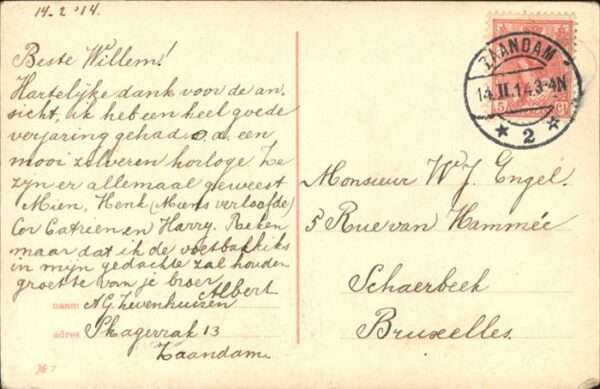 14-2 '14.
Beste Willem!
Hartelijke dank voor de an-
sicht, ik heb een heel goede
verjaring gehad o.a. een
mooi zilveren horloge. Ze
zijn er allemaal geweest
Mien, Henk (Miens verloofde)
Cor Catrien en Harry. Reken
maar dat ik de voetbalkiks
in mijn gedachte zal houden
groetste van je broer
Albert
naam A.G. Zevenhuizen
adres Skagerrak 13
Zaandam
№ 7
ZAANDAM
14.II.14.3-4N
2
5 CT
Monsieur W. J. Engel.
5 Rue van Hammée
Schaerbeek
Bruxelles.